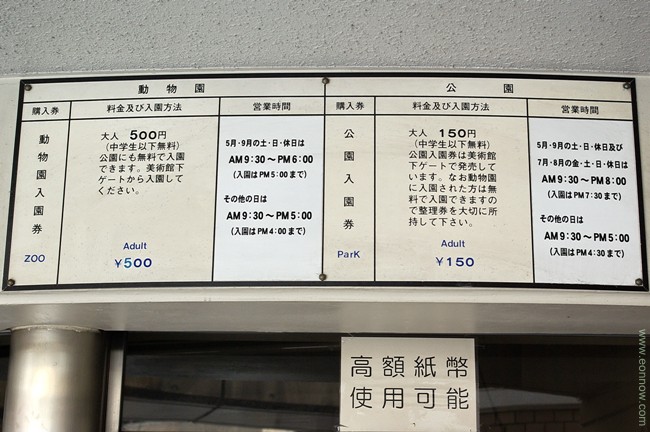 動物園
購入券
料金及び入園方法
営業時間
動物園入園券
ZOO
大人 500円
(中学生以下無料)
公園にも無料で入園
できます。美術館下
ゲートから入園して
ください。
Adult
¥500
5月・9月の土・日・休日は
AM9:30～PM6:00
(入園はPM5:00まで)
その他の日は
AM9:30～PM5:00
(入園はPM4:00まで)
公園
購入券
料金及び入園方法
営業時間
公園入園券
ParK
大人 150円
(中学生以下無料)
公園入園券は美術館
下ゲートで発売して
います。なお動物園
に入園された方は無
料で入園できますの
で整理券を大切に所
持して下さい。
Adult
¥150
5月・9月の土・日・休日及び
7月・8月の金・土・日・休日は
AM9:30～PM8:00
(入園はPM7:30まで)
その他の日は
AM9:30～PM5:00
(入園はPM4:30まで)
高額紙幣
使用可能
www.eonnow.com